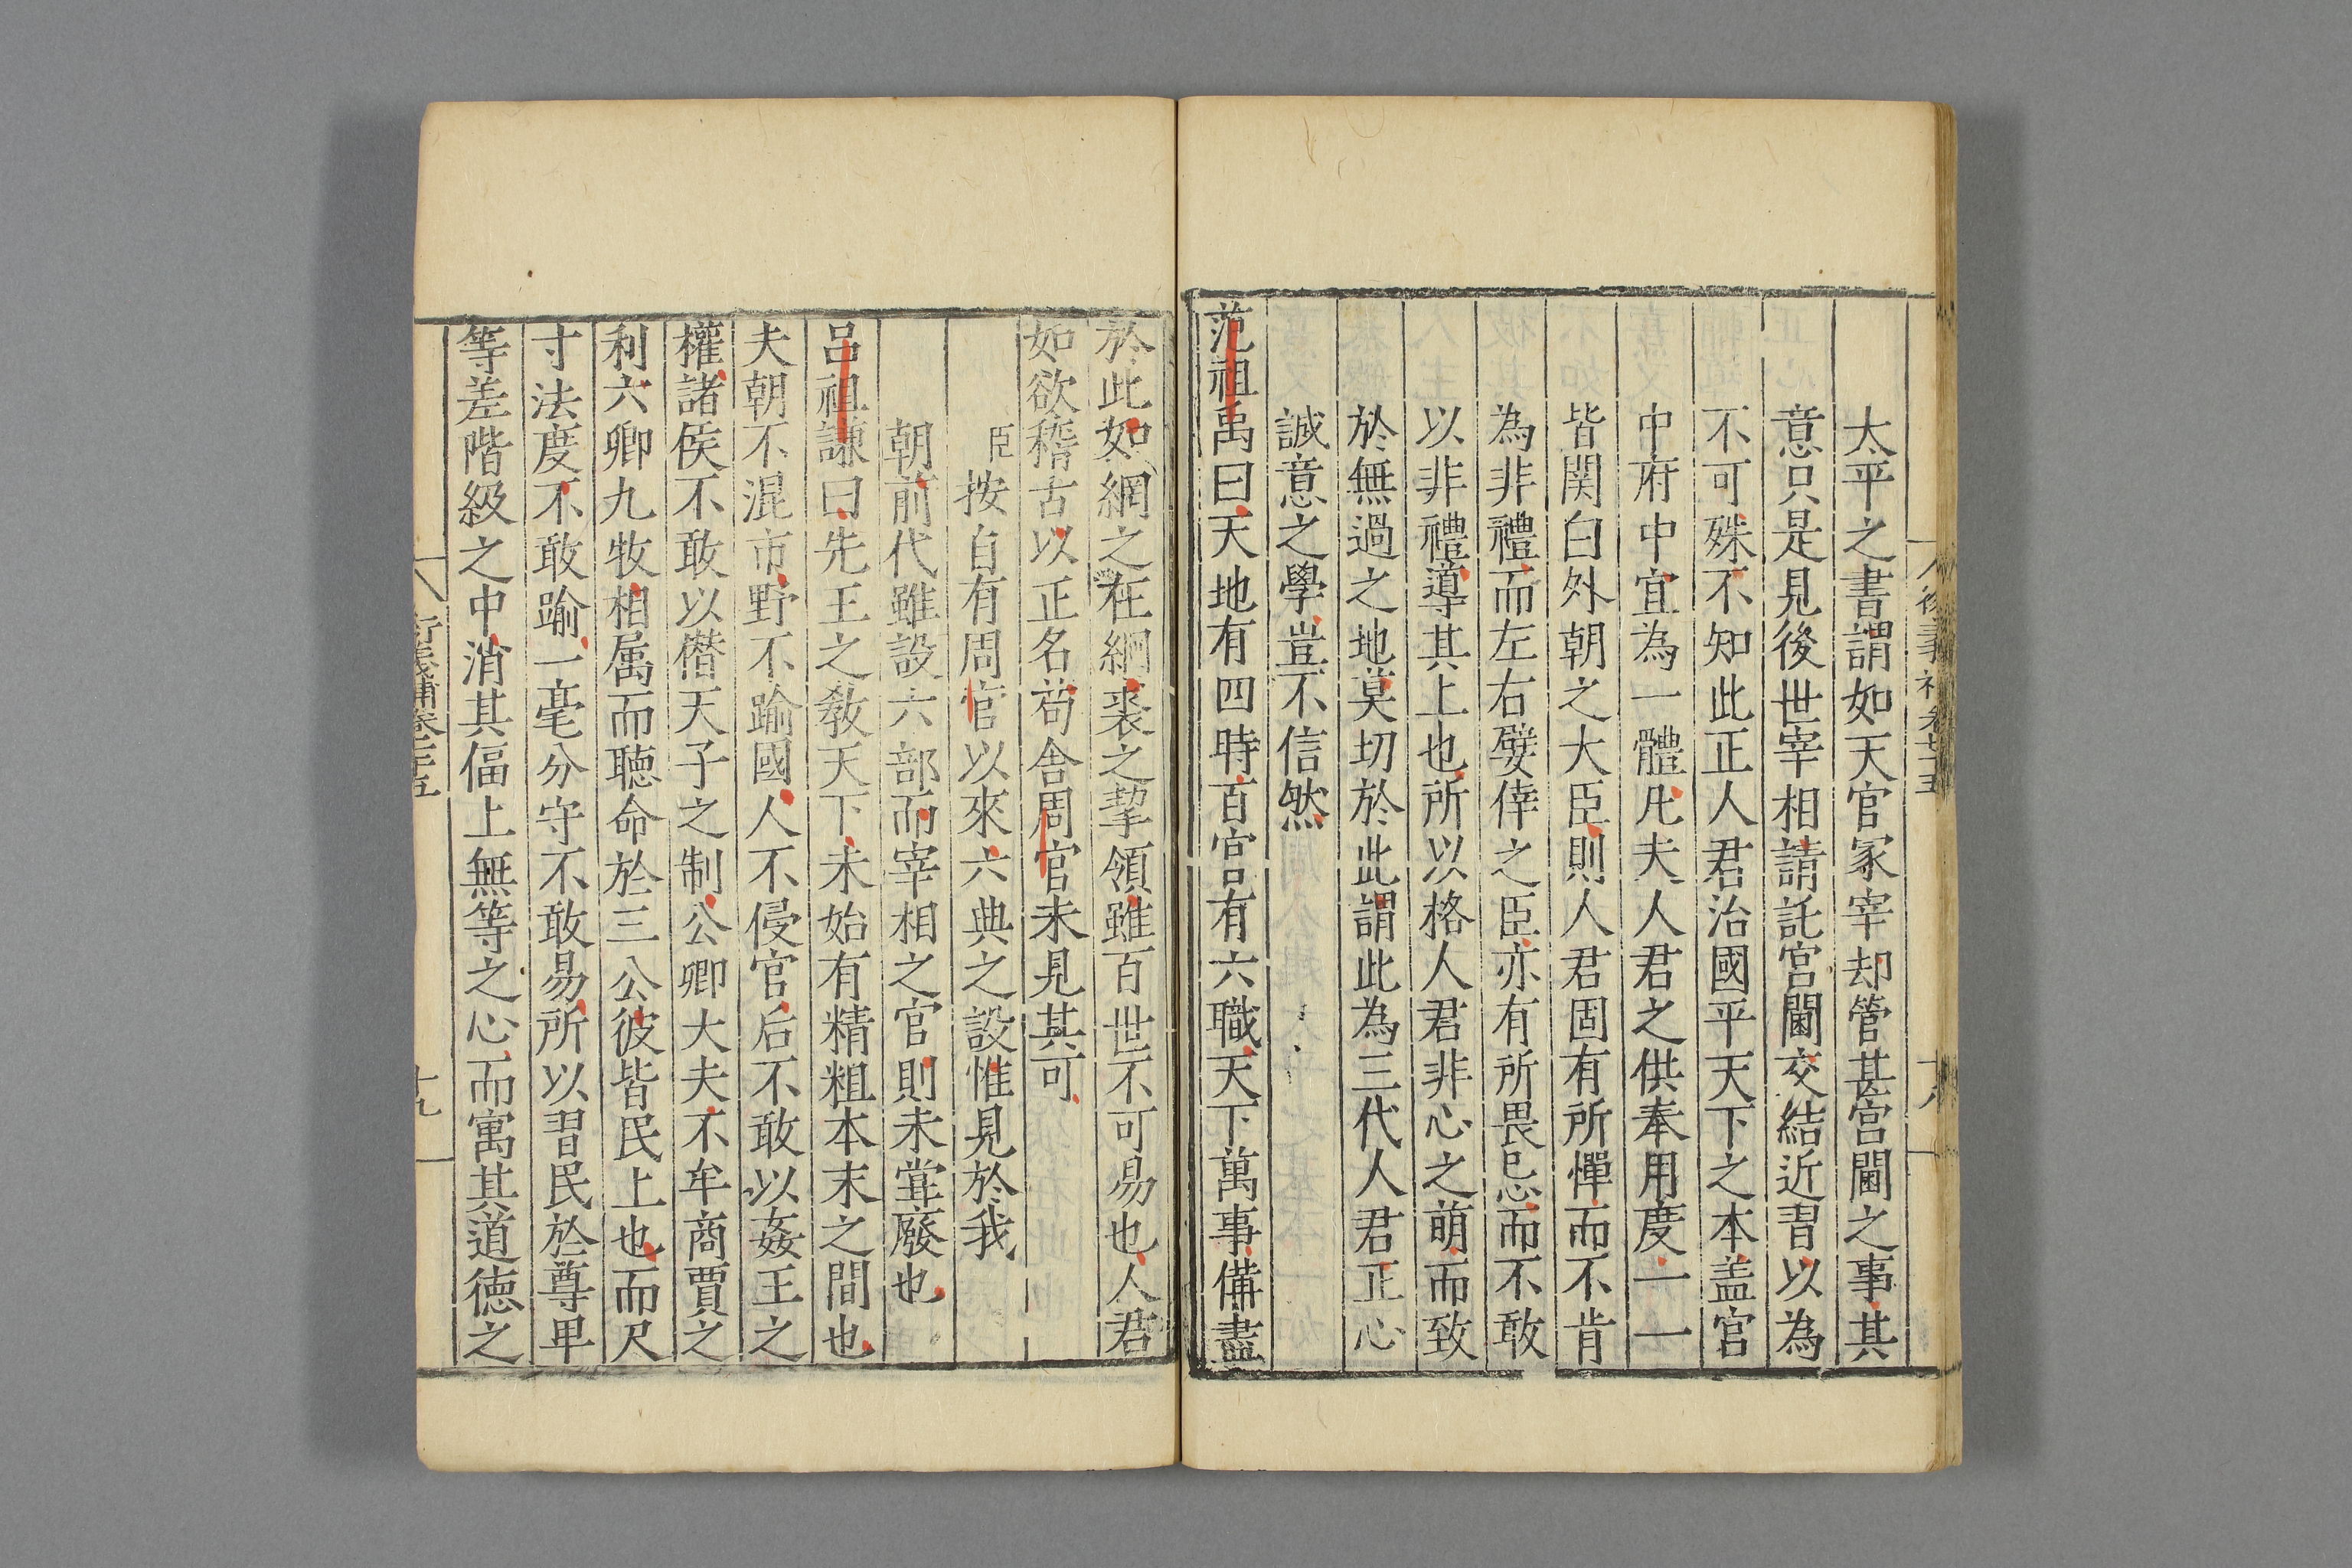 太平之書謂如天官冢宰却管甚宮閫之事其
意只是見後世宰相請託宮闈交結近習以為
不可殊不知此正人君治國平天下之本盖宫
中府中宜為一體凡夫人君之供奉用度一一
皆関白外朝之大臣則人君固有所憚而不肯
為非禮而左右嬖倖之臣亦有所畏忌而不敢
以非禮導其上也所以格人君非心之萌而致
於無過之地莫切於此謂此為三代人君正心
誠意之學豈不信然
范祖禹曰天地有四時百官有六職天下萬事備盡
於此如網之在綱裘之挈領雖百世不可易也人君
如欲稽古以正名苟舍周官未見其可
臣按自有周官以來六典之設惟見於我
朝前代雖設六部而宰相之官則未甞廢也
呂祖謙曰先王之敎天下未始有精粗本末之間也
夫朝不混市野不踰國人不侵官后不敢以姦王之
權諸侯不敢以僭天子之制公卿大夫不牟商賈之
利六卿九牧相属而聽命於三公彼皆民上也而尺
寸法度不敢踰一毫分守不敢易所以習民於尊卑
等差階級之中消其偪上無等之心而寓其道德之
衍義補卷七十五
十八
衍義補卷七十五
十九